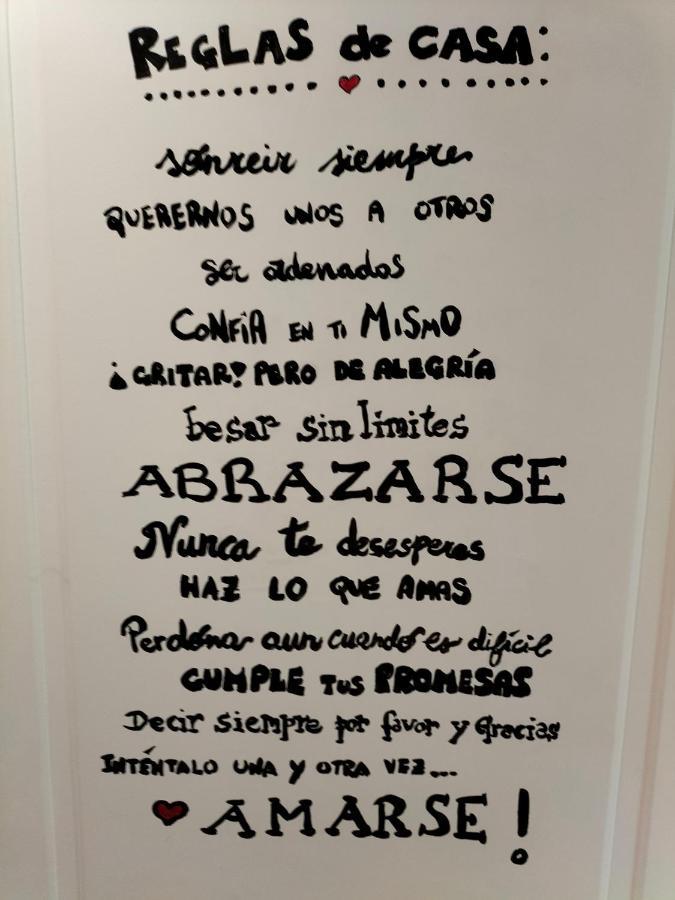 REGLAS de CASA:
sonreir siempre
QUERERNOS UNOS A OTROS
ser ordenados
CONFíA EN TI MISMO
¡GRITAR! PERO DE ALEGRÍA
besar sin límites
ABRAZARSE
Nunca te desesperes
HAZ LO QUE AMAS
Perdona aun cuando es difícil
CUMPLE TUS PROMESAS
Decir siempre por favor y Gracias
INTÉNTALO UNA Y OTRA VEZ...
AMARSE!